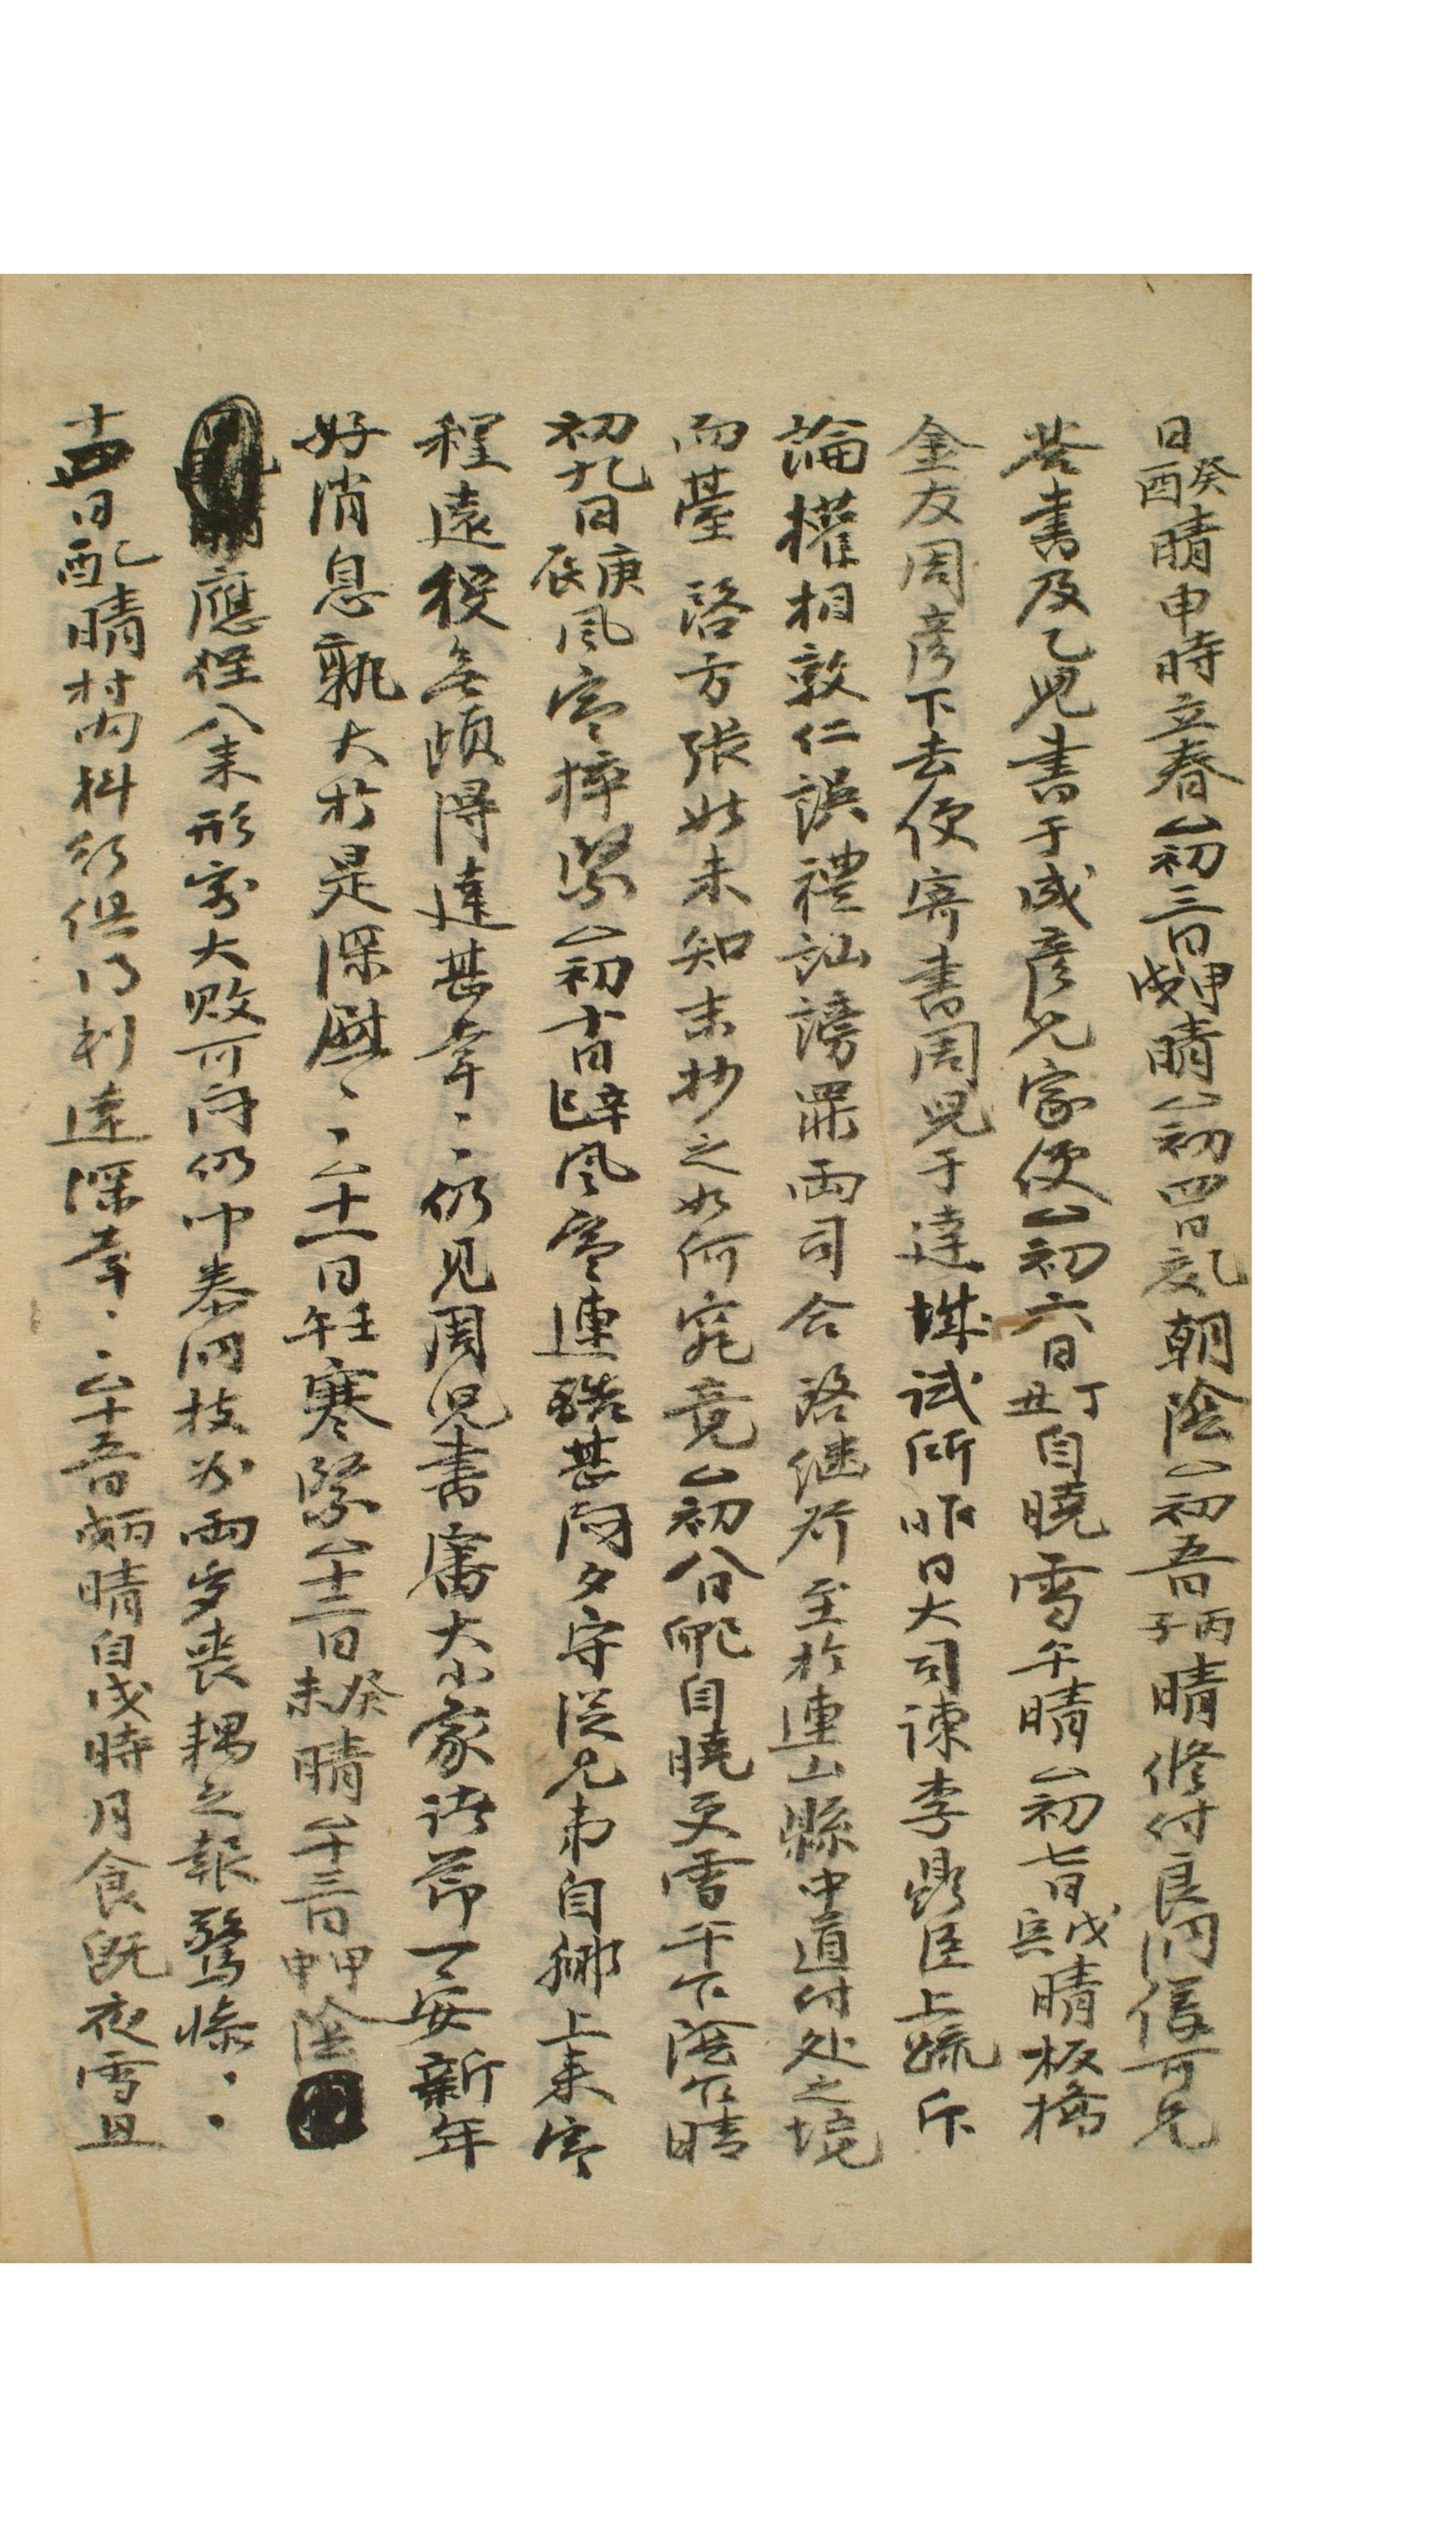 日癸酉晴申時立春△初三日甲戌晴△初四日乙亥朝陰△初五日丙子晴修付良洞僕可兄
答書及乙兒書于成彦兄家便△初六日丁丑自曉雪午晴△初七日戊寅晴板橋
金友周彦下去便寄書周兒于達城試所昨日大司諫李鼎臣上疏斥
論權相敦仁誤禮訕謗罪兩司合啓繼發至於連山縣中道付处之境
而臺啓方張姑未知末抄之如何究竟△初八日己卯自曉又雪午後陰乍晴
初九日庚辰風寒猝緊△初十日辛巳風寒連酷甚悶夕宇從兄弟自鄕上來寒
程遠役無頉得達甚幸、、仍見周兒書審大小家諸節一安新年
好消息孰大於是深慰、、△十一日壬午寒緊△十二日癸未晴△十三日甲申陰
應徑入來形容大敗可悶仍聞泰洞枝內兩岁丧耦之報驚慘、、
十四日乙酉晴村內科行俱得利達深幸、、△十五日丙戌晴自戌時月食旣夜雪且